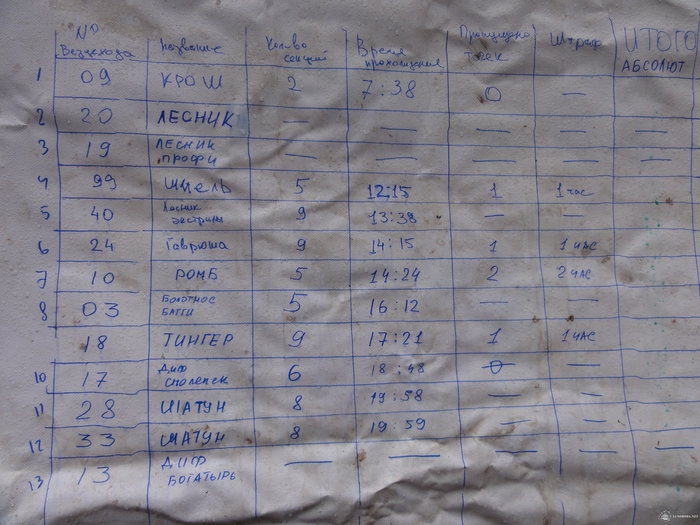 № Вездехода Название Кол-во секций Время прохождения Точек Штраф ИТОГО АБСОЛЮТ
1 09 КРОШ 2 7:38 0 —
2 20 ЛЕСНИК — — — — —
3 19 ЛЕСНИК ПРОФИ — — — — —
4 99 5 12:15 1 1 час
5 40 Лесник 9 13:38 — —
6 24 Гаврюша 9 14:15 1 1 ЧАС
7 10 РОМБ 5 14:24 2 2 ЧАС
8 03 Болотное БАГГИ 5 16:12 — —
18 ТИНГЕР 9 17:21 1 1 ЧАС
10 17 ДИФ СМОЛЕНСК 6 18:48 0 —
11 28 ШАТУН 8 19:58 — —
12 33 ШАТУН 8 19:59 — —
13 13 ДИФ БОГАТЫРЬ — — — — —